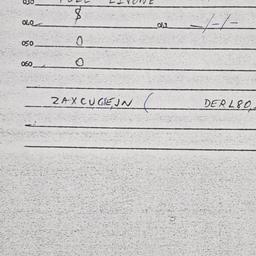 030
040 8 043 -/-/-
050 0
060 0
ZAXCUGEJN ( DERL80,